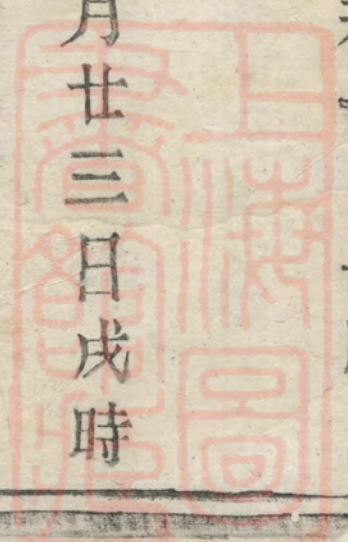 月廿三日戌時
上海圖書館藏